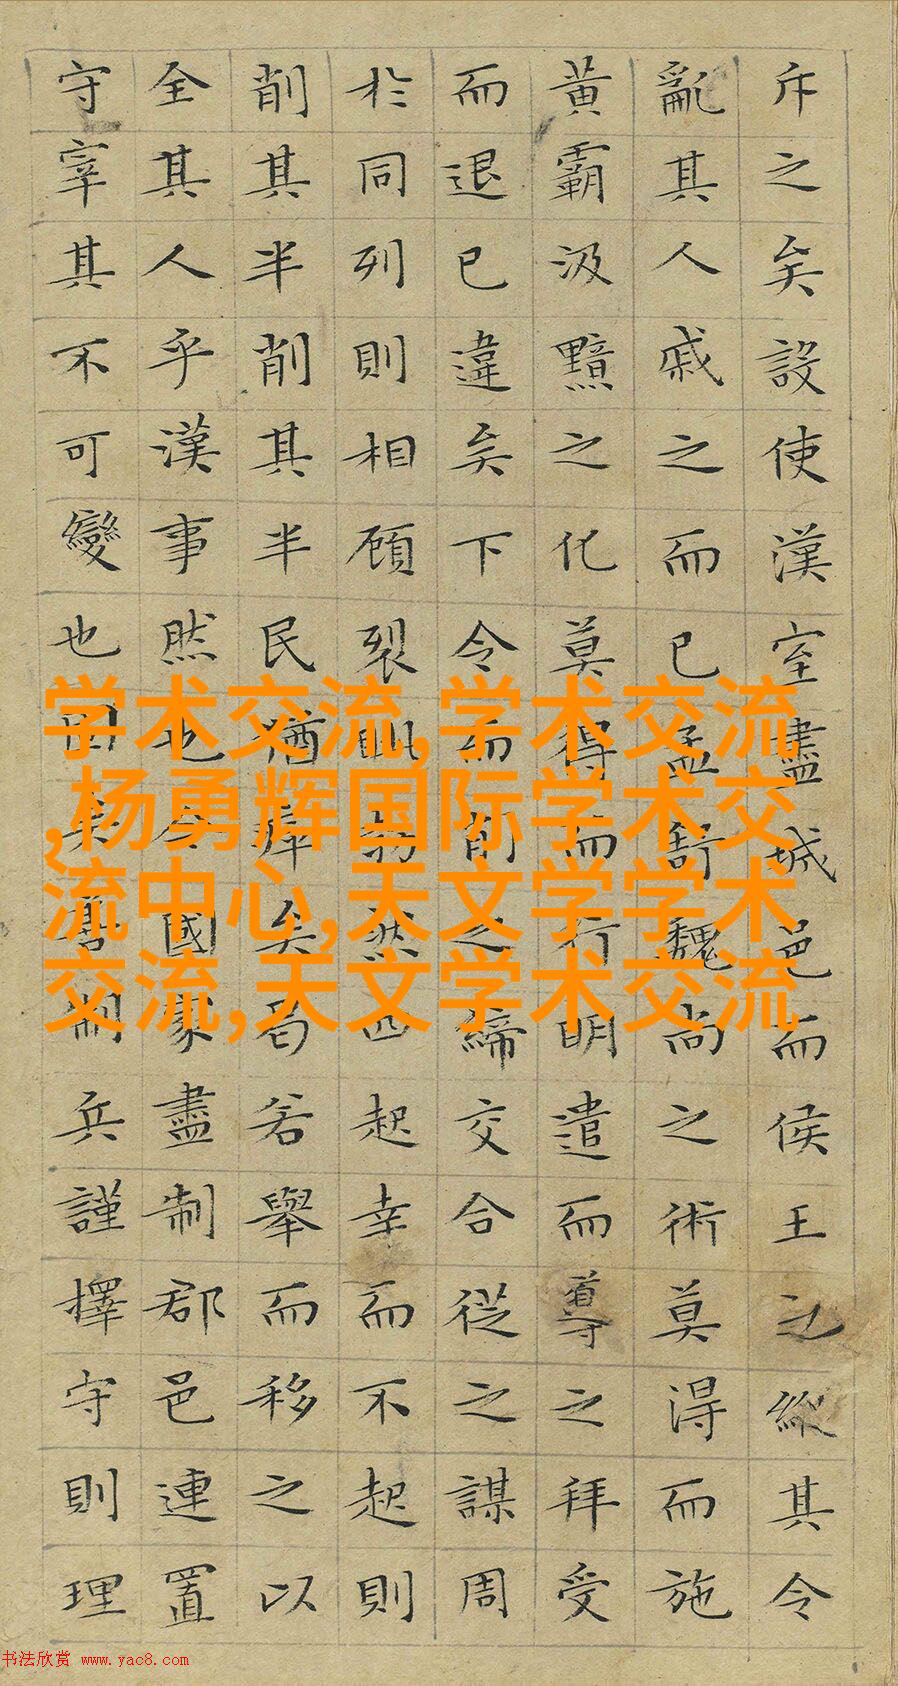 斥之矣設使漢室盡城邑而侯王之縱其令
亂其人戚之而已孟舒魏尚之術莫得而施
黃霸汲黯之化莫得而行明遣而導之拜受
而退已違矣下令而削之締交合從之謀周
於同列則相顧裂眦勃然四起幸而不起則
削其半削其半民猶瘁矣曷若舉而移之以
全其人乎漢事然也今國家盡制郡邑連置
守宰其不可變也固矣善制兵謹擇守則理
学术交流,学术交流
,杨勇辉国际学术交
流中心,天文学学术
交流,天文学术交流
书法欣赏 www.yac8.com